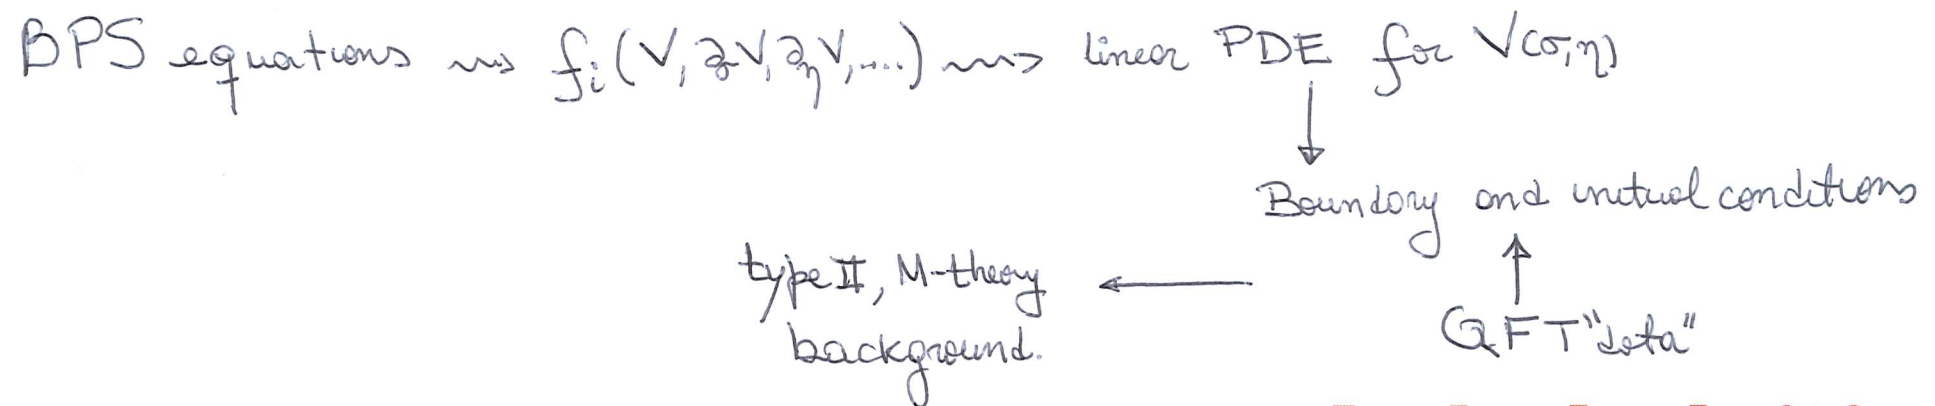 BPS equations ⇝ fᵢ(V, ∂σV, ∂ηV, ....) ⇝ linear PDE for V(σ,η)
↓
Boundary and initial conditions
type II, M-theory ← ↑
background. QFT "data"